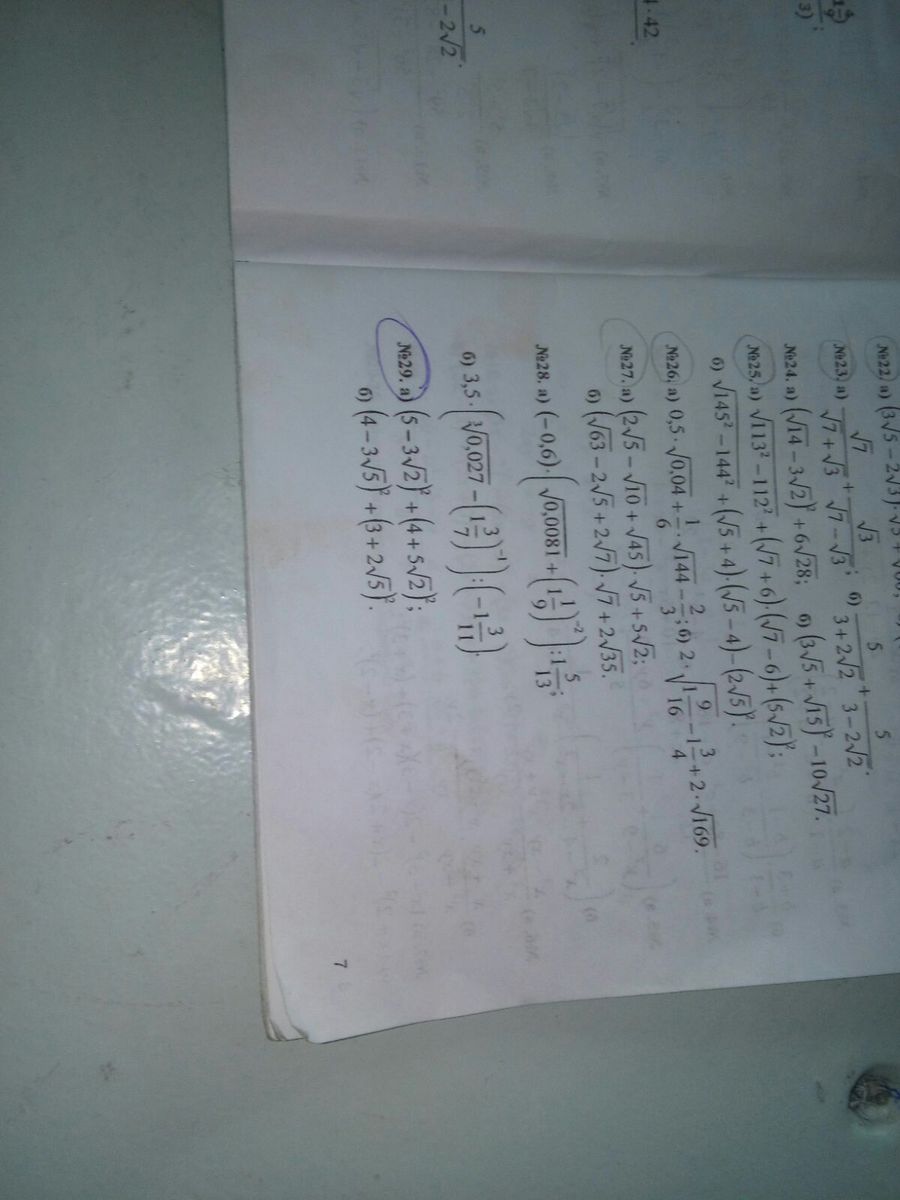 №22. а) (3√5 − 2√3)·√5 + √60;
№23. а) √7/(√7 + √3) + √3/(√7 − √3); б) 5/(3 + 2√2) + 5/(3 − 2√2).
№24. а) (√14 − 3√2)² + 6√28; б) (3√5 + √15)² − 10√27.
№25. а) √(113² − 112²) + (√7 + 6)·(√7 − 6) + (5√2)²;
б) √(145² − 144²) + (√5 + 4)·(√5 − 4) − (2√5)².
№26. а) 0,5·√0,04 + 1/6·√144 − 2/3; б) 2·√(1 9/16) − 1 3/4 + 2·√169.
№27. а) (2√5 − √10 + √45)·√5 + 5√2;
б) (√63 − 2√5 + 2√7)·√7 + 2√35.
№28. а) (−0,6)·(√0,0081 + (1 1/9)⁻²) : 1 5/13;
б) 3,5·(∛0,027 − (1 3/7)⁻¹) : (−1 3/11).
№29. а) (5 − 3√2)² + (4 + 5√2)²;
б) (4 − 3√5)² + (3 + 2√5)².
7
· 42
5
− 2√2